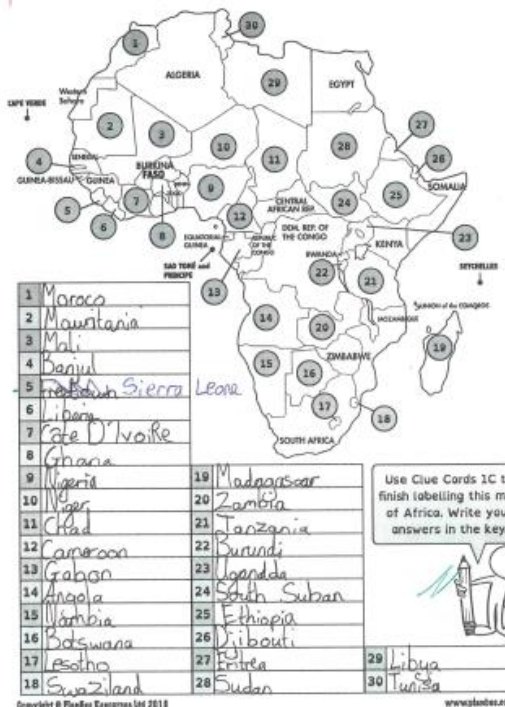 30
1
ALGERIA
29
EGYPT
Western
Sahara
CAPE VERDE
2
3
10
11
28
27
4
SENEGAL
BURKINA
FASO
26
GUINEA-BISSAU
GUINEA
9
25
SOMALIA
5
6
7
8
12
CENTRAL
AFRICAN REP.
24
EQUATORIAL
GUINEA
REPUBLIC
OF THE
CONGO
DEM. REP. OF
THE CONGO
KENYA
23
SAO TOMÉ and
PRINCIPE
RWANDA
22
21
SEYCHELLES
13
UNION of the COMOROS
14
20
MOZAMBIQUE
19
15
16
ZIMBABWE
17
18
SOUTH AFRICA
1 Moroco
2 Mauritania
3 Mali
4 Banjul
5 Freetown Sierra Leone
6 Liberia
7 Cate D'IvoiRe
8 Ghana
9 Nigeria
10 Niger
11 Chad
12 Cameroon
13 Gabon
14 Angola
15 Nambia
16 Botswana
17 Lesotho
18 Swaziland
19 Madagascar
20 Zambia
21 Tanzania
22 Burundi
23 Ugandda
24 South Suban
25 Ethiopia
26 Djibouti
27 Eritrea
28 Sudan
29 Libya
30 Tunisia
Use Clue Cards 1C t
finish labelling this m
of Africa. Write you
answers in the key
Copyright © PlanBee Resources Ltd 2018
www.planbee.c